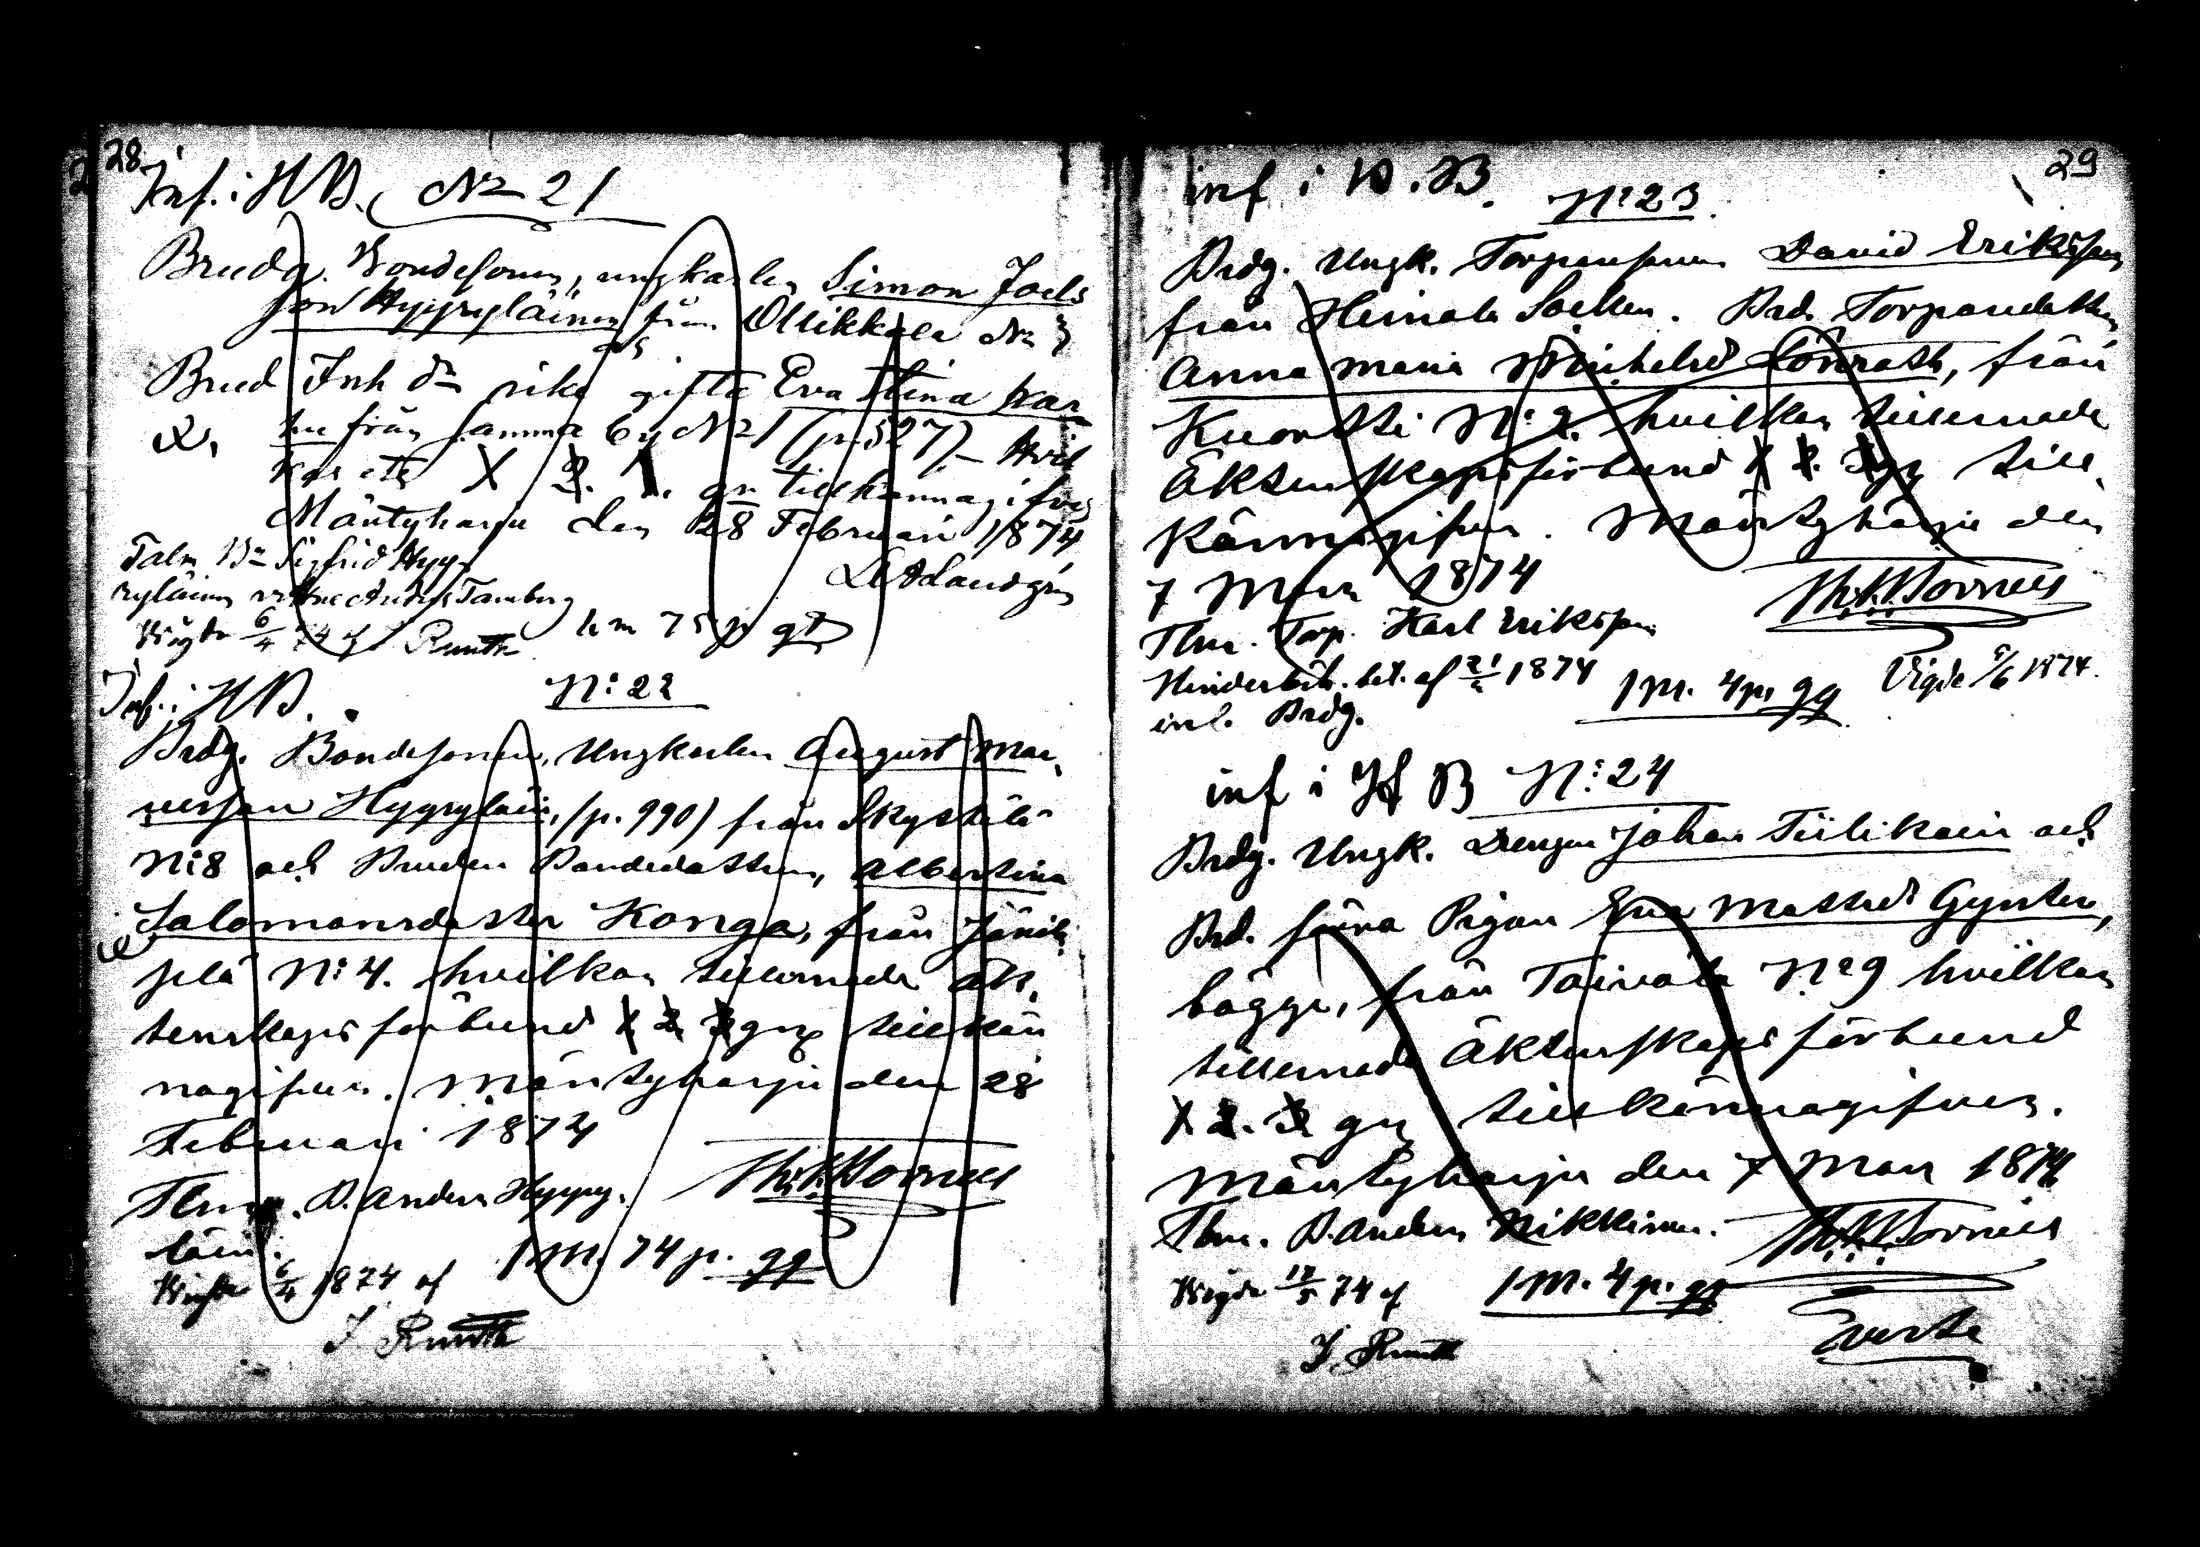 28
Inf. i H B. No 21
Brudg. Bondesonen, ungkarlen Simon Joels
son Hyyryläinen från Ollikkala No 3
och
Brud Inh dr gifta Eva Stina
från samma by No 1 (p. 527) Hvil
kas 1. 2. gr. tillkännagifves
Mäntyharju den 28 Februari 1874
Taln Bn Sigfrid Hyy-
ryläinen Anders Tamberg
Vigde 6/4 74 af Ruuth 75 p gt
Inf. i H B. N:o 22
Brdg. Bondesonen, Ungkarlen August Mar-
nusson Hyyryläin, (p. 990) från Skystilä
N:o 8 och Bruden Bondedottern, Albertina
Salomonsdotter Konga, från Jänik-
pelä N:o 4. hvilkas tillernade äk-
tenskaps förbund 1 2 3 gng tillkän
nagifven. Mäntyharju den 28
Februari 1874
Tlm. B. Anders Hyyry-
läin.
Vigde 6/4 1874 af 1 m. 74 p. gg
J. Ruuth
29
inf i H. B. N:o 23
Brdg. Ungk. Torparesonen David Eriksson
från Heinola Socken. Brd. Torparedottern
Anna Maria Michelsd Lönroth, från
Kuortti N:o 2. hvilkas tillernade
Äktenskapsförbund 1 2. 3 gg till-
kännagifven. Mäntyharju den
7 Mars 1874
Tlm. Torp. Karl Eriksson
Hindersb. bet. af 21/2 1874 1 m. 4 p. gg Vigde 5/6 1874.
inl. Brdg.
inf i H B N:o 24
Brdg. Ungk. Drengen Johan Tiilikain och
Brd. Pigan Eva Mattsd Gynter,
bägge, från Toivola N:o 9 hvilkas
tillernade Äktenskaps förbund
1 2. 3 gng tillkännagifven.
Mäntyharju den 7 Mars 1874
Tlm. B. Anders Nikkinen.
Vigde 17/5 74 af 1 m. 4 p. gg
J. Ruuth